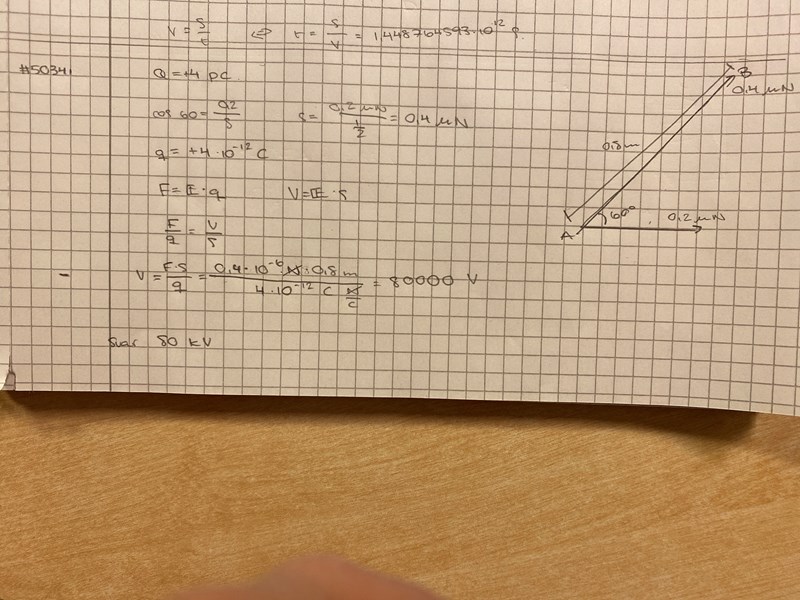 V = s/t ⇔ t = s/V = 1,448764593·10^12 s.
#5034.
Q = +4 pC
cos 60 = 0,2/s s = 0,2 μN / 1/2 = 0,4 μN
q = +4·10^-12 C
F = E·q V = E·s
F/q = V/s
V = F·s/q = 0,4·10^-6 N·0,8 m / 4·10^-12 C N/C = 80000 V
Svar 80 kV
B
0,4 μN
0,8m
60°
0,2 μN
A